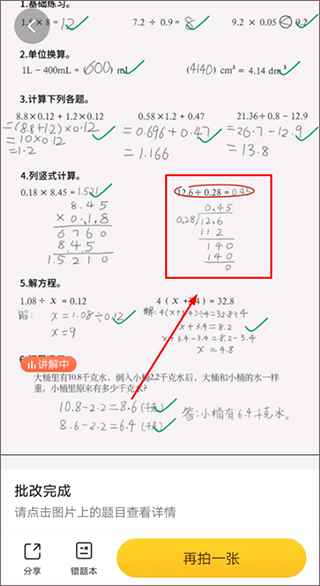 1.基础练习。
× 8 = 12
7.2 ÷ 0.9 = 8
9.2 × 0.05 0.2
2.单位换算。
1L - 400mL = (600) mL
(4140) cm³ = 4.14 dm³
3.计算下列各题。
8.8×0.12 + 1.2×0.12
0.58×1.2 + 0.47
21.36÷0.8 - 12.9
=(8.8+1.2)×0.12
=0.696+0.47
=26.7-12.9
=10×0.12
=1.166
=13.8
=1.2
4.列竖式计算。
0.18 × 8.45 = 1.521
12.6 ÷ 0.28 = 0.45
8.45
× 0.18
6760
845
1.5210
0.45
0.28 12.6
112
140
140
0
5.解方程。
1.08 ÷ x = 0.12
4(x+3.4) = 32.8
解: x=1.08÷0.12
解: 4(x+3.4)÷4=32.8÷4
x=9
x+3.4=8.2
x+3.4-3.4=8.2-3.4
x=4.8
讲解中
大桶里有10.8千克水，倒入小桶2.2千克水后，大桶和小桶的水一样
重。小桶里原来有多少千克水?
10.8-2.2=8.6(千克)
8.6-2.2=6.4(千克)
答:小桶有6.4千克水。
批改完成
请点击图片上的题目查看详情
分享
错题本
再拍一张